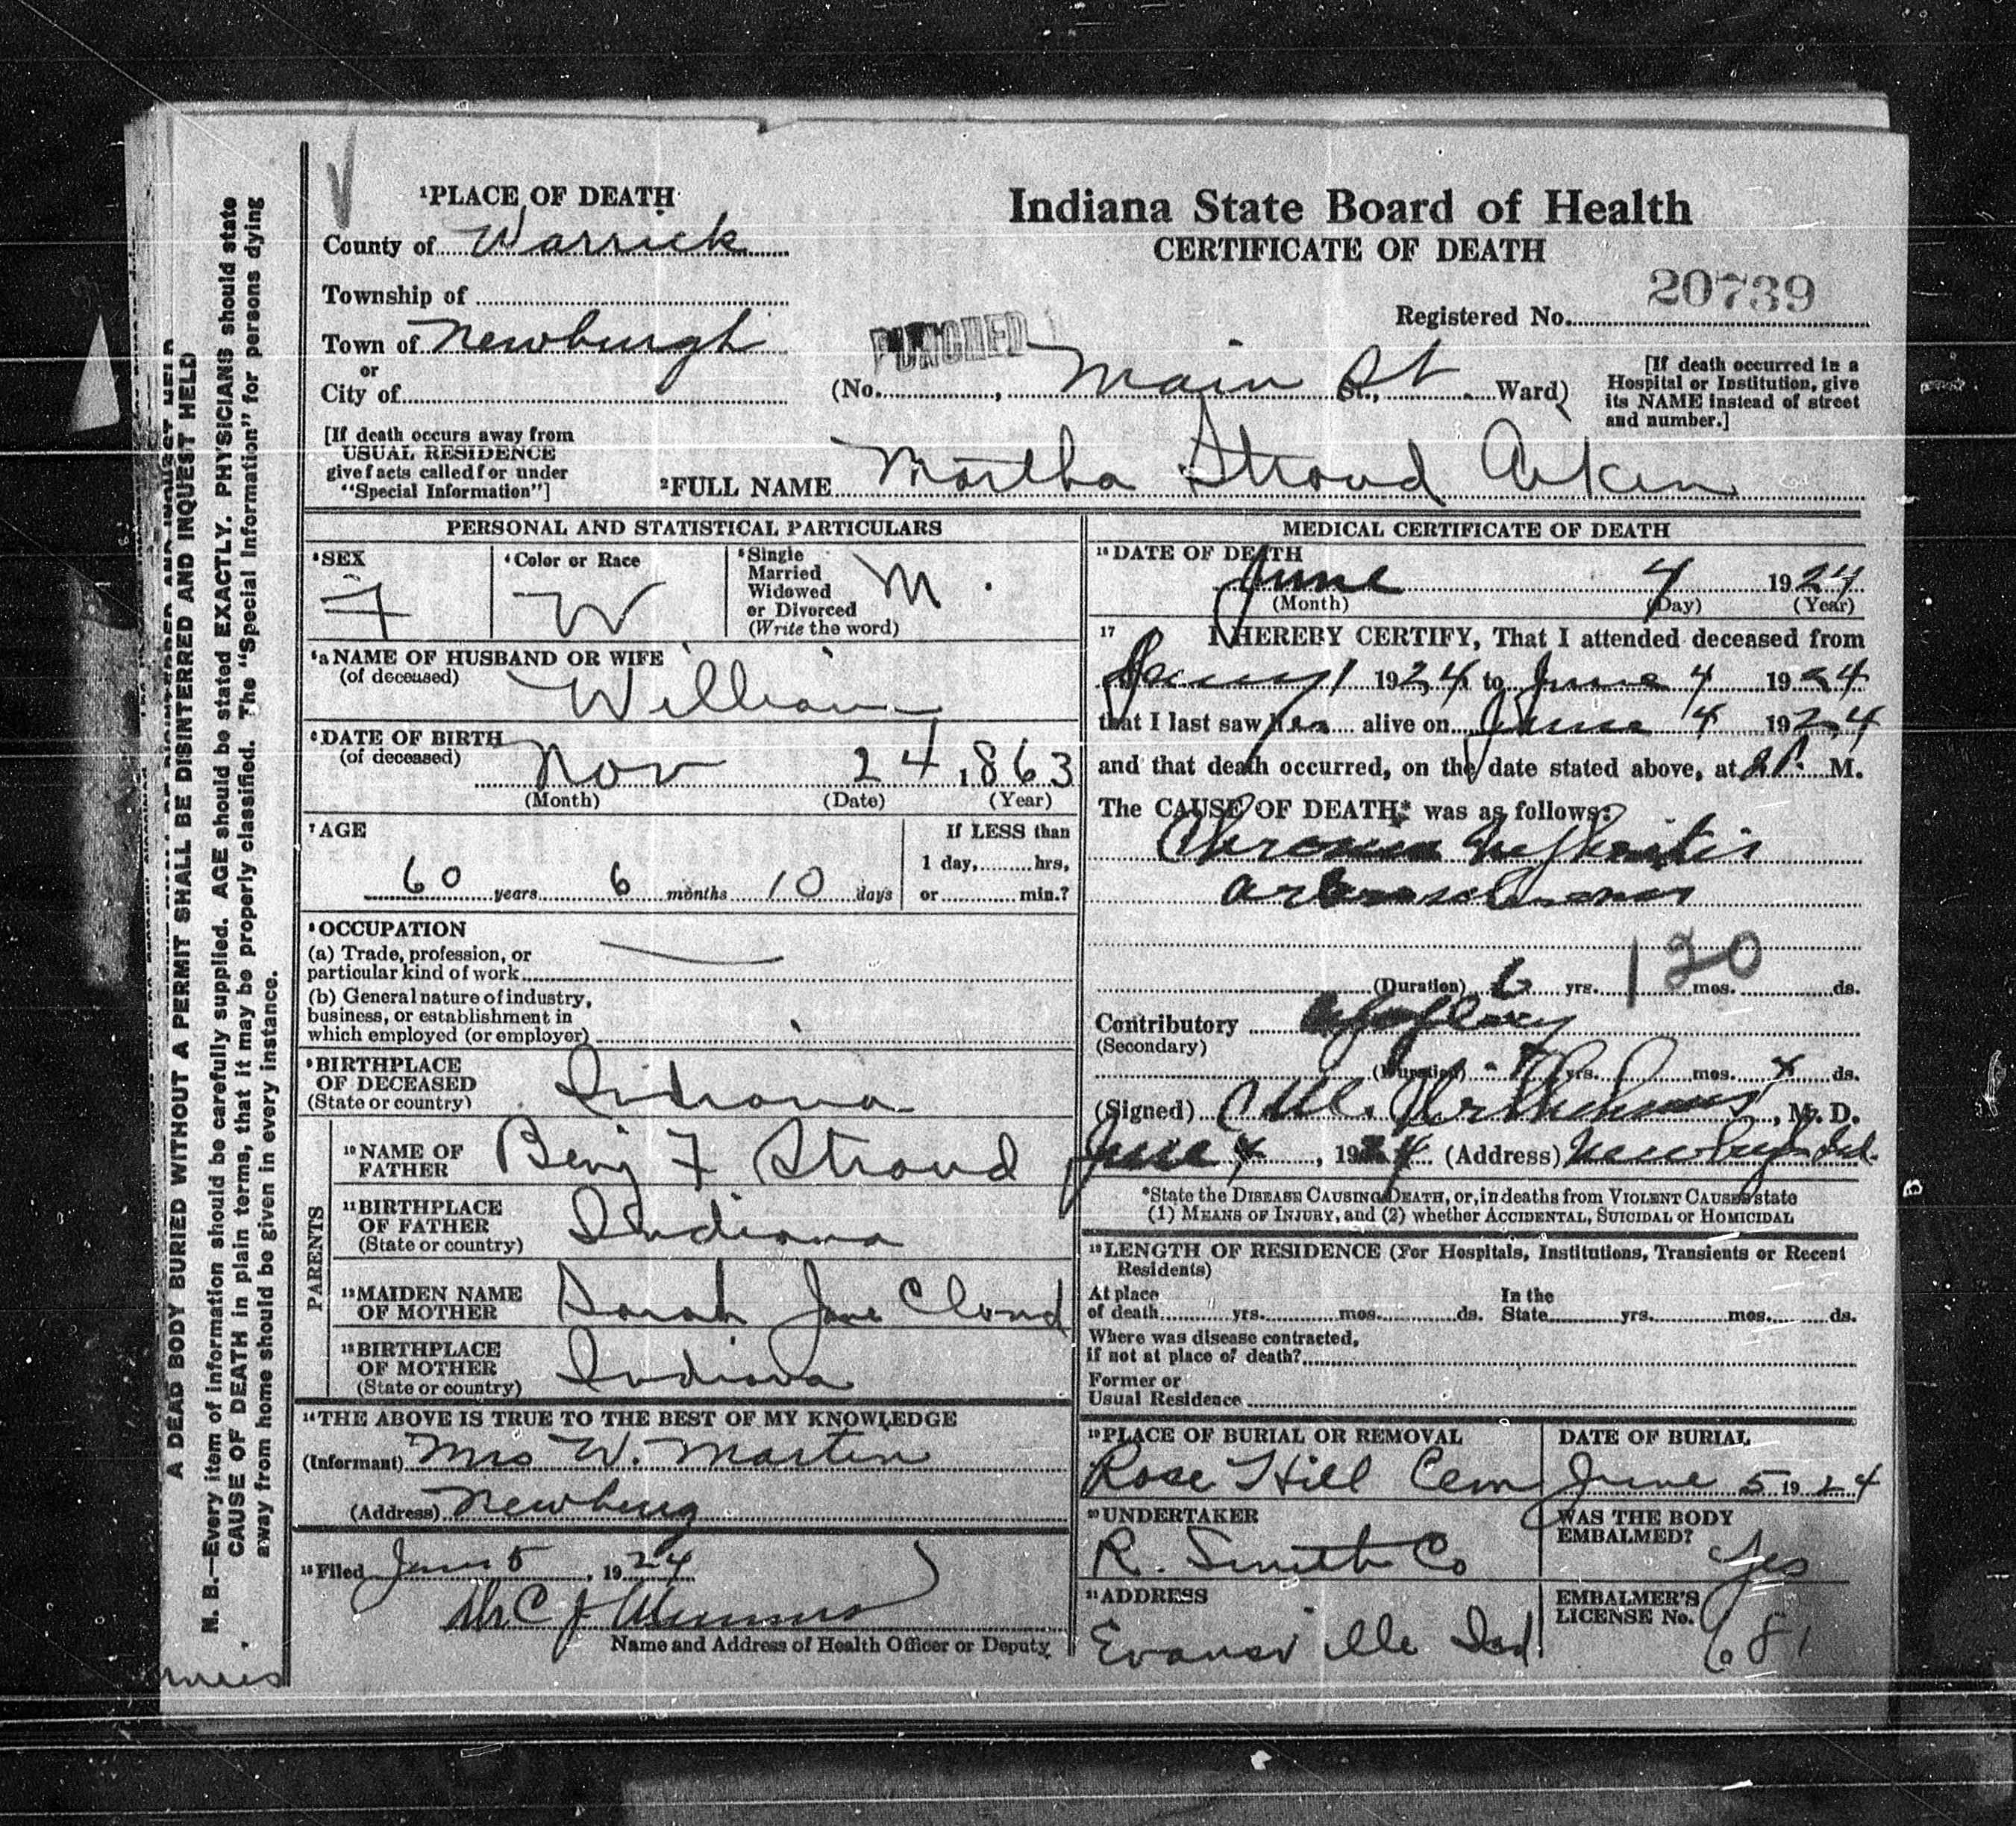 ¹PLACE OF DEATH
County of Warrick
Township of
Town of Newburgh
or
City of
[If death occurs away from
USUAL RESIDENCE
give facts called for under
"Special Information"]
Indiana State Board of Health
CERTIFICATE OF DEATH
20739
Registered No.
PUNCHED
(No. , Main St St., Ward)
[If death occurred in a
Hospital or Institution, give
its NAME instead of street
and number.]
²FULL NAME Martha Stroud Aiken
PERSONAL AND STATISTICAL PARTICULARS
³SEX
F
⁴Color or Race
W
⁵Single
Married
Widowed
or Divorced
(Write the word)
M
⁵a NAME OF HUSBAND OR WIFE
(of deceased)
William
⁶DATE OF BIRTH
(of deceased)
Nov 24, 1863
(Month) (Date) (Year)
⁷AGE
60 years 6 months 10 days
If LESS than
1 day, hrs,
or min.?
⁸OCCUPATION
(a) Trade, profession, or
particular kind of work
(b) General nature of industry,
business, or establishment in
which employed (or employer)
⁹BIRTHPLACE
OF DECEASED
(State or country)
Indiana
PARENTS
¹⁰NAME OF
FATHER
Benj F Stroud
¹¹BIRTHPLACE
OF FATHER
(State or country)
Indiana
¹²MAIDEN NAME
OF MOTHER
Sarah Jane Cloud
¹³BIRTHPLACE
OF MOTHER
(State or country)
Indiana
¹⁴THE ABOVE IS TRUE TO THE BEST OF MY KNOWLEDGE
(Informant) Mrs W. Martin
(Address) Newburg
¹⁵Filed June 5, 1924
Dr C J
Name and Address of Health Officer or Deputy
MEDICAL CERTIFICATE OF DEATH
¹⁶DATE OF DEATH
June 4 1924
(Month) (Day) (Year)
¹⁷ I HEREBY CERTIFY, That I attended deceased from
1 1924 to June 4 1924
that I last saw her alive on June 4 1924
and that death occurred, on the date stated above, at M.
The CAUSE OF DEATH* was as follows:
Chronic Nephritis
arterosclerosis
120
(Duration) 6 yrs. mos. ds.
Contributory apoplexy
(Secondary)
(Duration) yrs. mos. ds.
(Signed) , M. D.
June 4, 1924 (Address) Newburgh Ind.
*State the DISEASE CAUSING DEATH, or, in deaths from VIOLENT CAUSES state
(1) MEANS OF INJURY, and (2) whether ACCIDENTAL, SUICIDAL or HOMICIDAL
¹⁸LENGTH OF RESIDENCE (For Hospitals, Institutions, Transients or Recent
Residents)
At place
of death yrs. mos. ds.
In the
State yrs. mos. ds.
Where was disease contracted,
if not at place of death?
Former or
Usual Residence
¹⁹PLACE OF BURIAL OR REMOVAL
Rose Hill Cem
DATE OF BURIAL
June 5 1924
²⁰UNDERTAKER
R. Smith Co
WAS THE BODY
EMBALMED?
Yes
²¹ADDRESS
Evansville Ind.
EMBALMER'S
LICENSE No.
681
A DEAD BODY BURIED WITHOUT A PERMIT SHALL BE DISINTERRED AND INQUEST HELD
N. B.—Every item of information should be carefully supplied. AGE should be stated EXACTLY. PHYSICIANS should state
CAUSE OF DEATH in plain terms, that it may be properly classified. The "Special Information" for persons dying
away from home should be given in every instance.